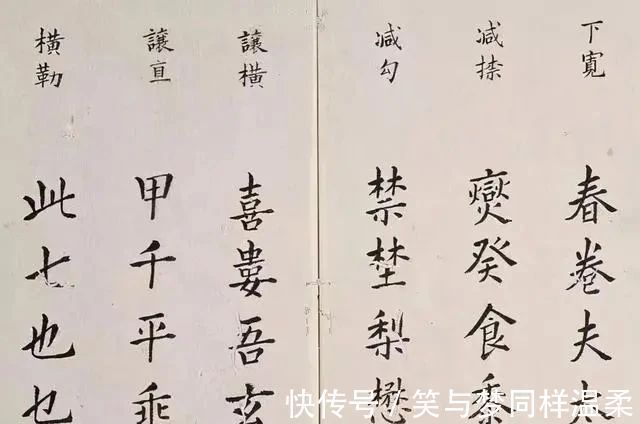 下寬
春卷夫
減捺
燮癸食黍
減勾
禁埜梨懋
讓橫
喜婁吾玄
讓直
甲千平乖
橫勒
此七也乜
快传号 / 笑与梦同样温柔